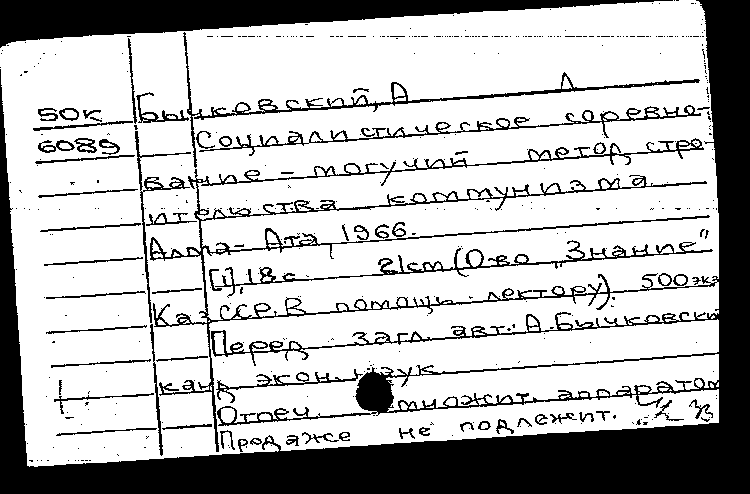 50к Бычковский, А Л
6089 Социалистическое соревно-
вание – могучий метод стро-
ительства коммунизма
Алма-Ата, 1966.
[1], 18 с. 21см (О-во „Знание"
КазССР. В помощь лектору). 500 экз
Перед загл. авт.: А. Бычковский
канд экон. наук.
Отпеч. множит. аппаратом
Продаже не подлежит.